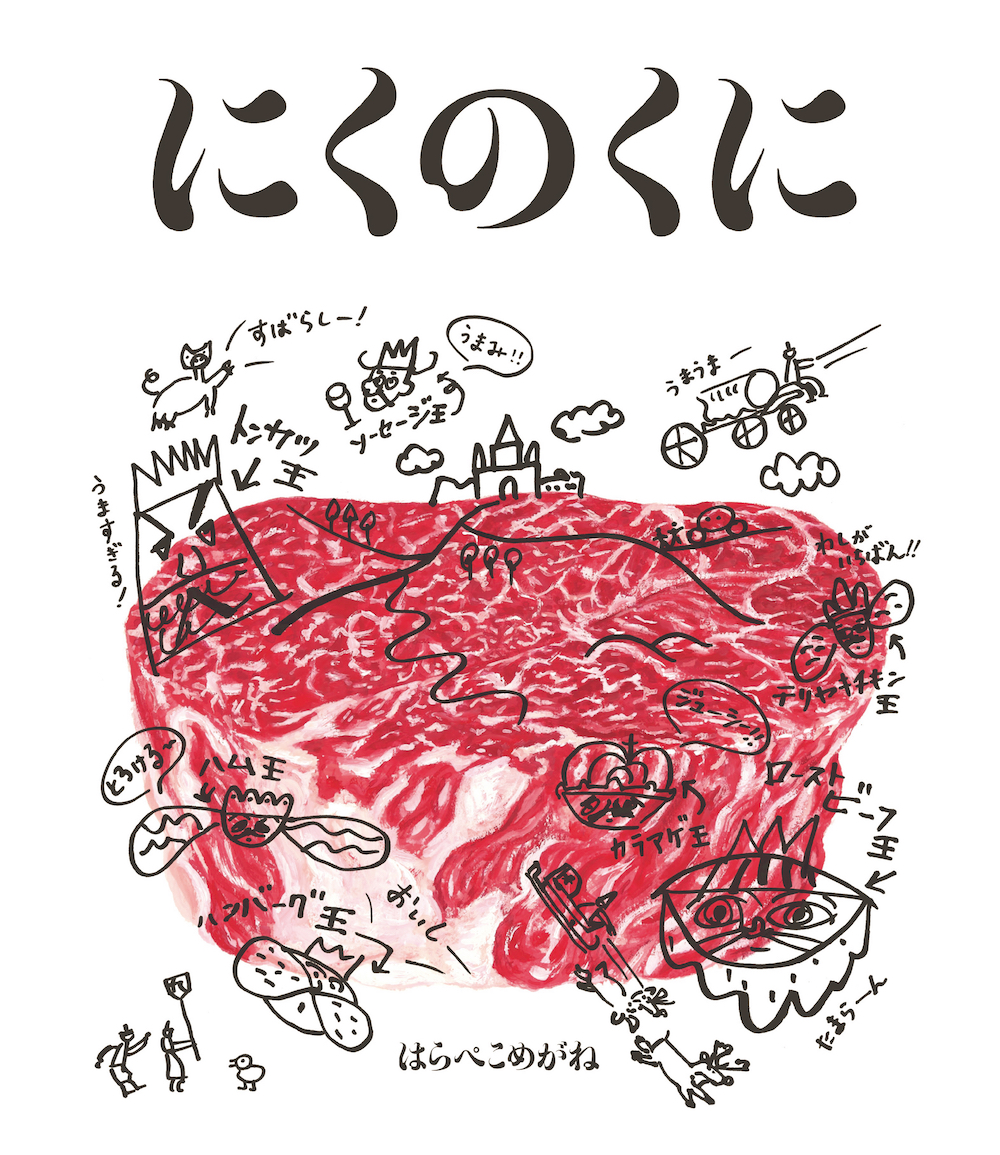 にくのくに
すばらしー!
うまみ!!
ソーセージ王
うまうま
トンカツ
王
うますぎる!
わしが
いちばん!!
テリヤキチキン
王
ジューシー!!
とろける〜
ハム王
カラアゲ王
ロースト
ビーフ
王
ハンバーグ王
おいしー
たまらーん
はらぺこめがね